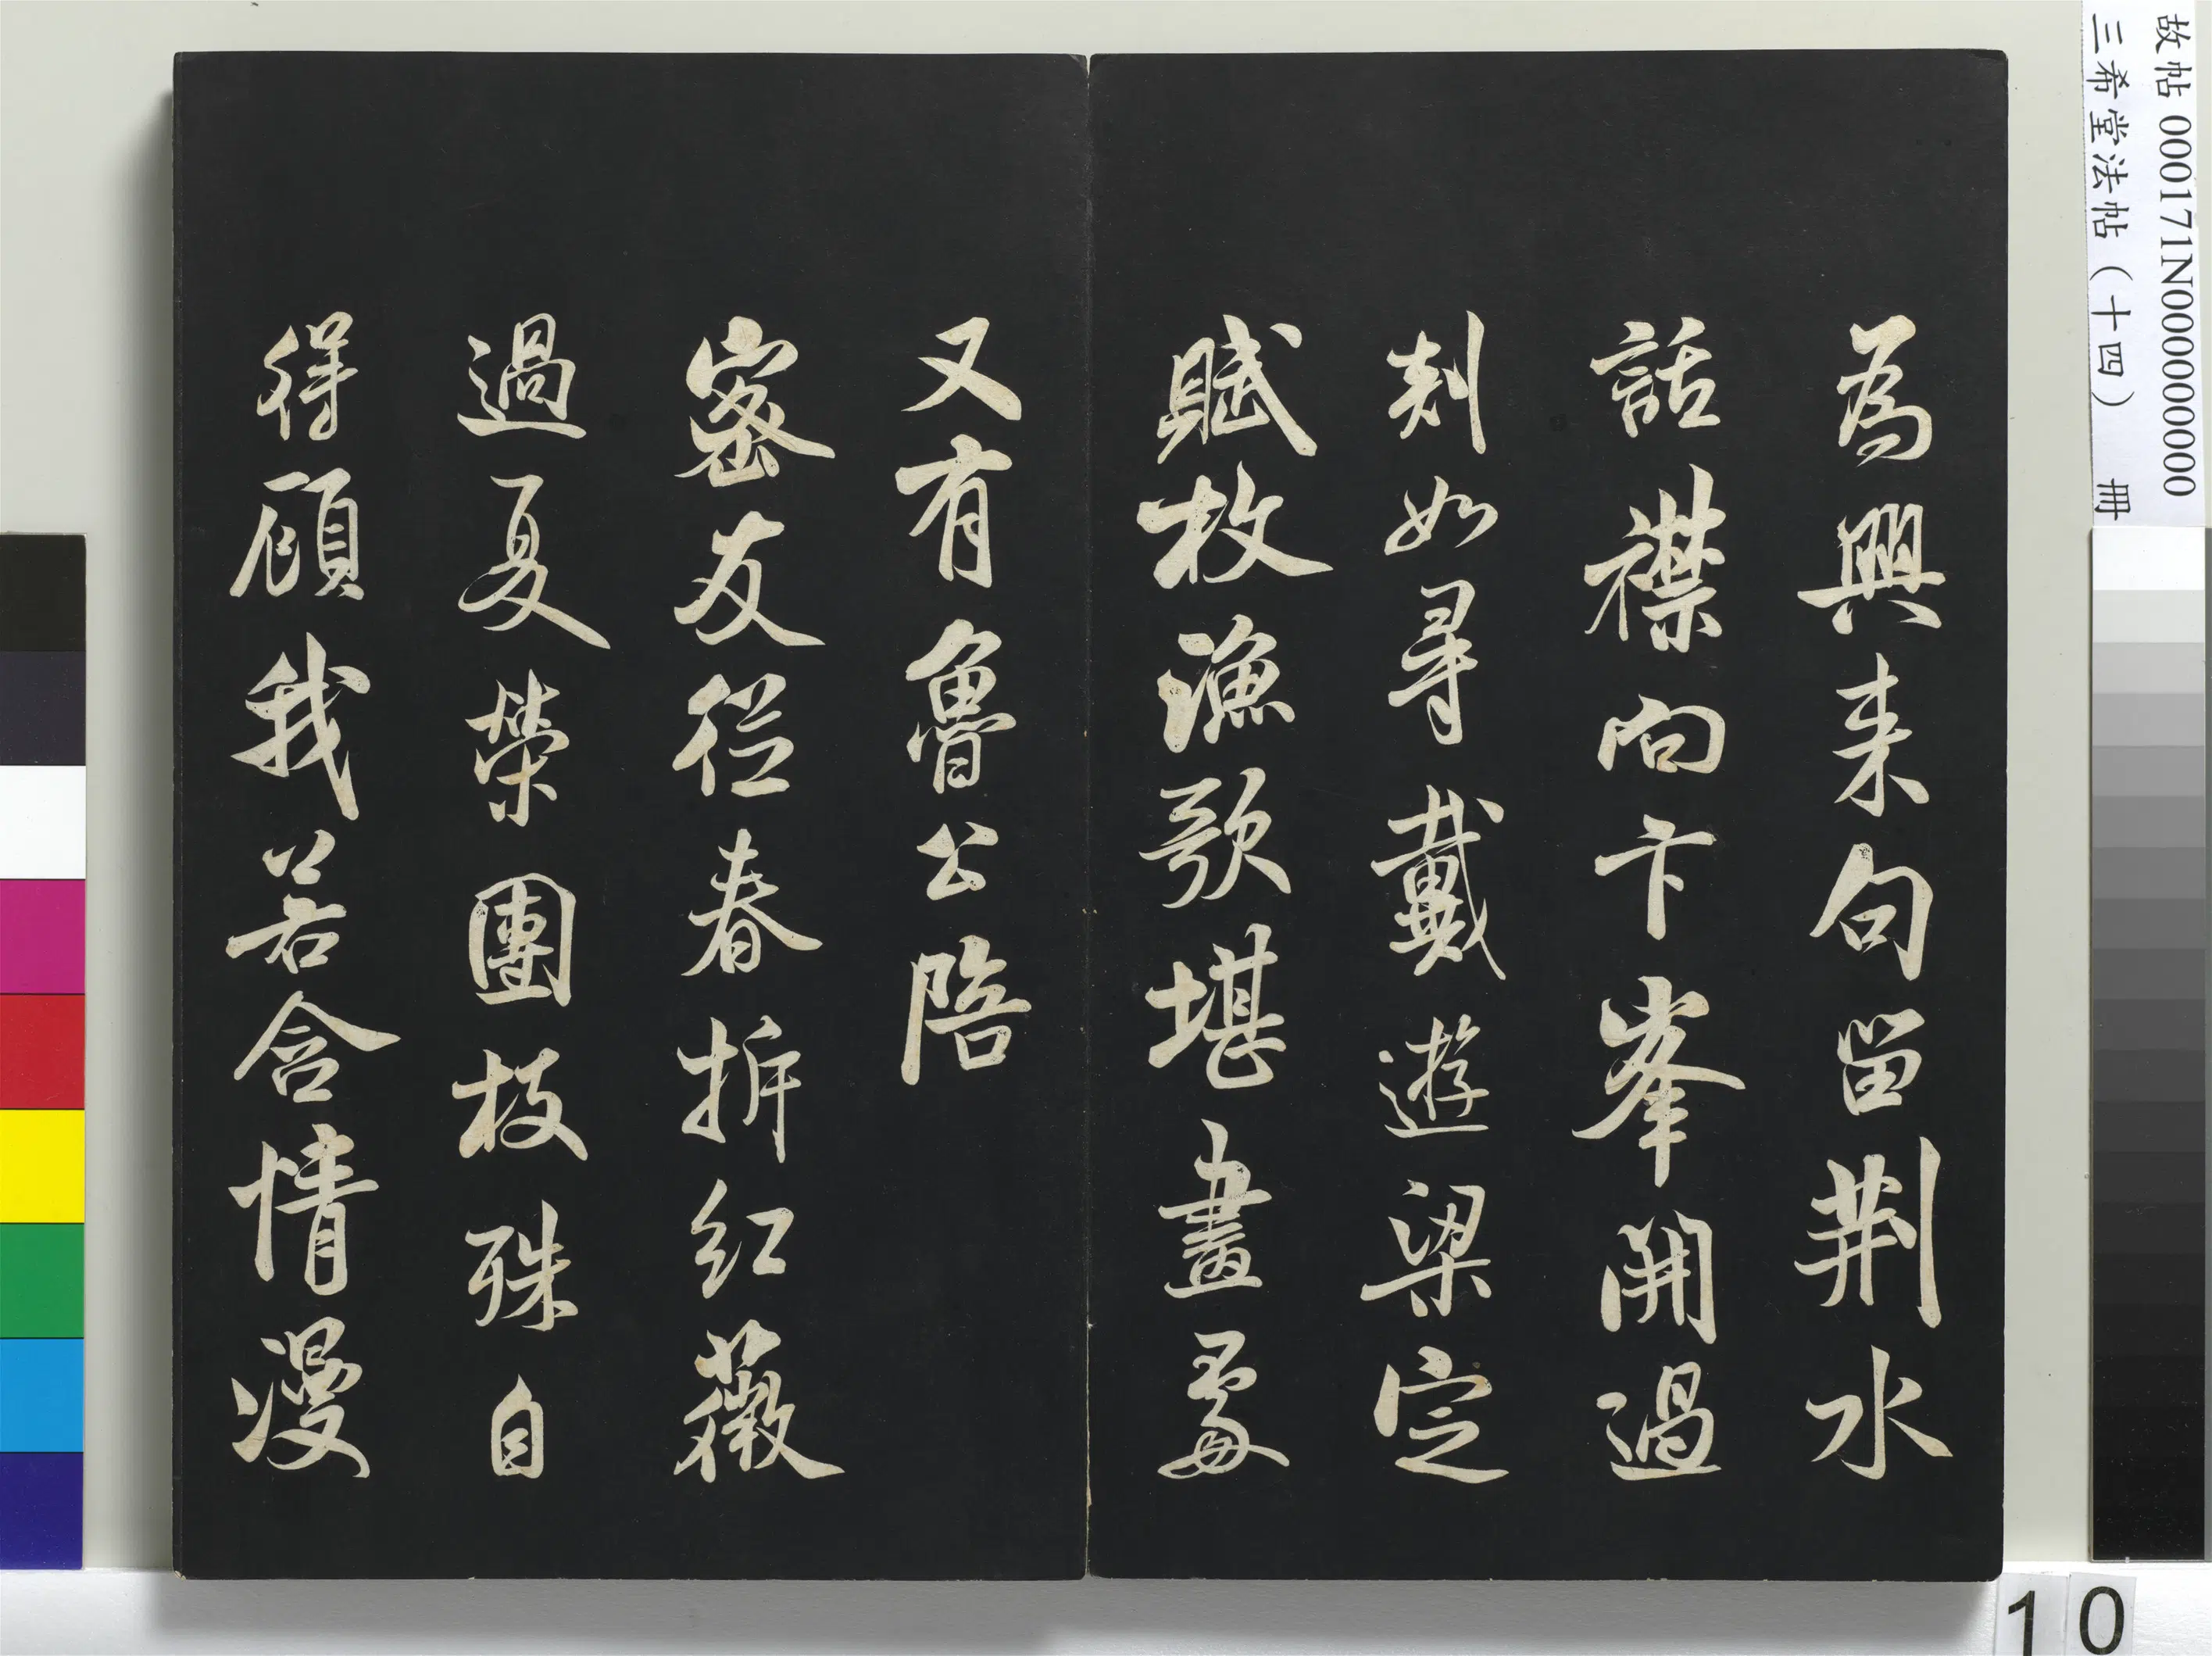 為興来句留荆水
話襟向卞峯開過
剡如尋戴遊梁定
賦枚漁歌堪畫處
又有魯公陪
密友從春拆紅薇
過夏榮團枝殊自
得顧我若含情漫
故帖 000171N000000000000
三希堂法帖（十四） 冊
10